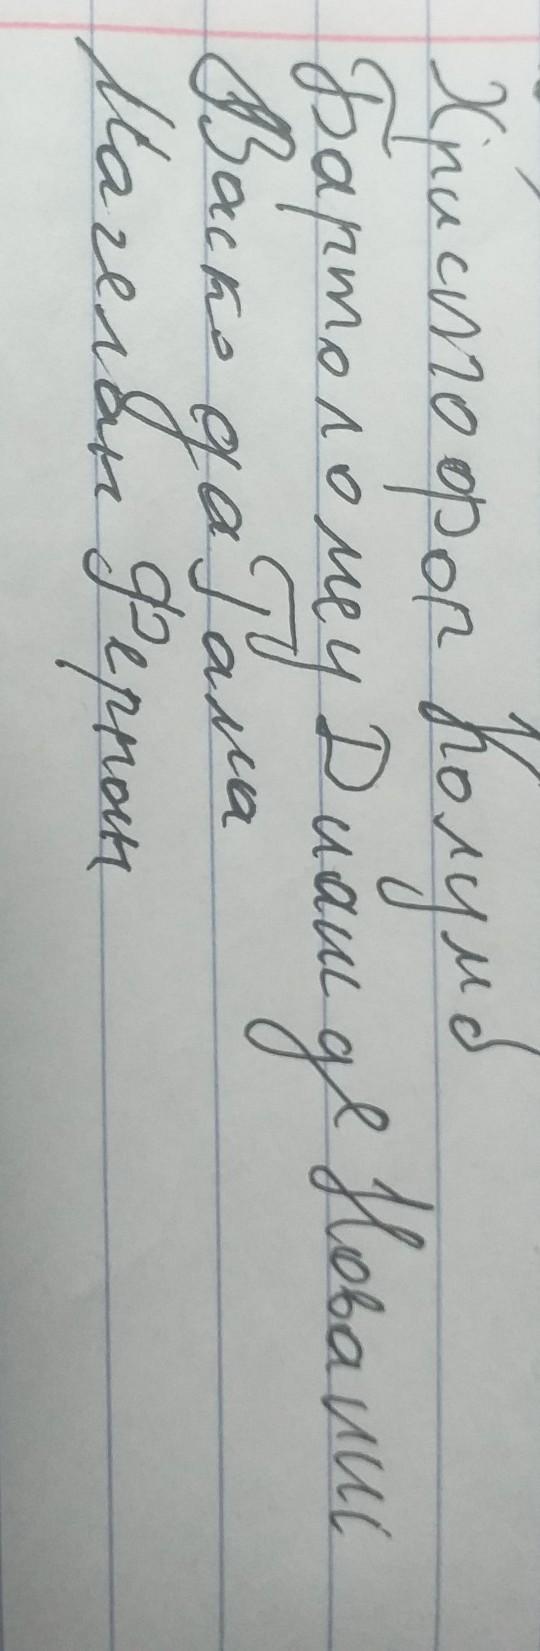 Христофор Колумб
Бартоломеу Диаш де Новаиш
Васко да Гама
Магелан Фернан